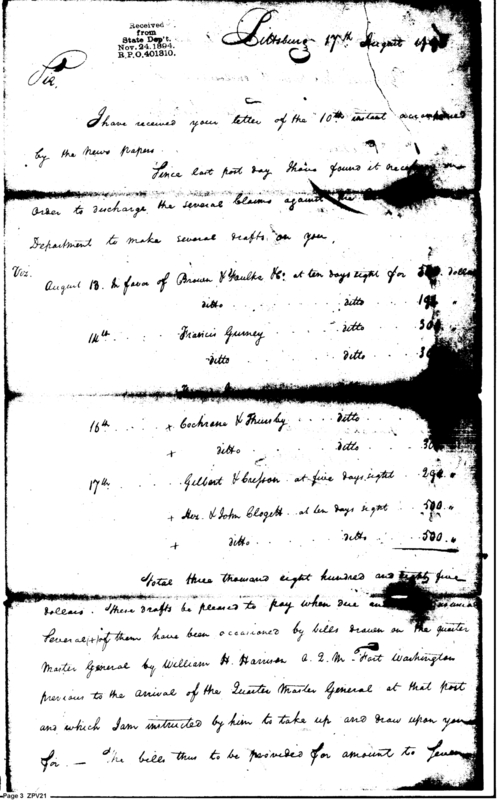 Received
from
State Dep't.
Nov. 24. 1894.
R.P.O. 401310.
Pittsburg 17th August
Sir,
I have received your letter of the 10th instant accompanied
by the News Papers.
Since last post day I have found it
Order to discharge the several Claims against the
Department to make several drafts on you,
Viz. August 13. In favor of Brown & Co. at ten days sight for dollars
ditto ditto "
14th Francis Gurney ditto "
ditto ditto
16th + Cochrane & Thursby ditto
+ ditto ditto "
17th Gilbert & at five days sight 294 "
+ & John Clogett at ten days sight 500 "
+ ditto ditto 500 "
Total three thousand eight hundred and eighty five
dollars. These drafts be pleased to pay when due and
Several (+) of them have been occasioned by bills drawn on the quarter
Master General by William H. Harrison A.Q.M. Fort Washington
previous to the arrival of the Quarter Master General at that post
and which I am instructed by him to take up and draw upon you
for. — The bills thus to be provided for amount to Seven
Page 3 ZPV21